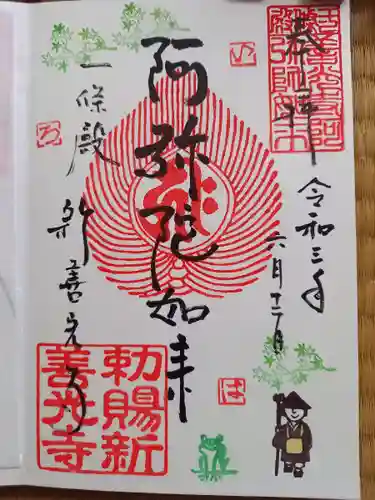 奉拝
令和三年
六月十二日
阿弥陀如来
一條殿
新善光寺
勅賜新
善光寺
い
ろ
は